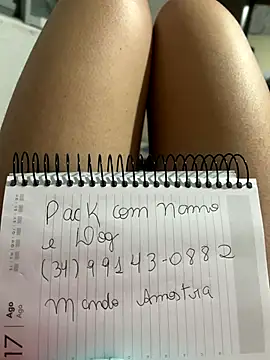 Pack com nome
e Dog
(34) 99143-0882
mando Amostra
17 Ago
Ago